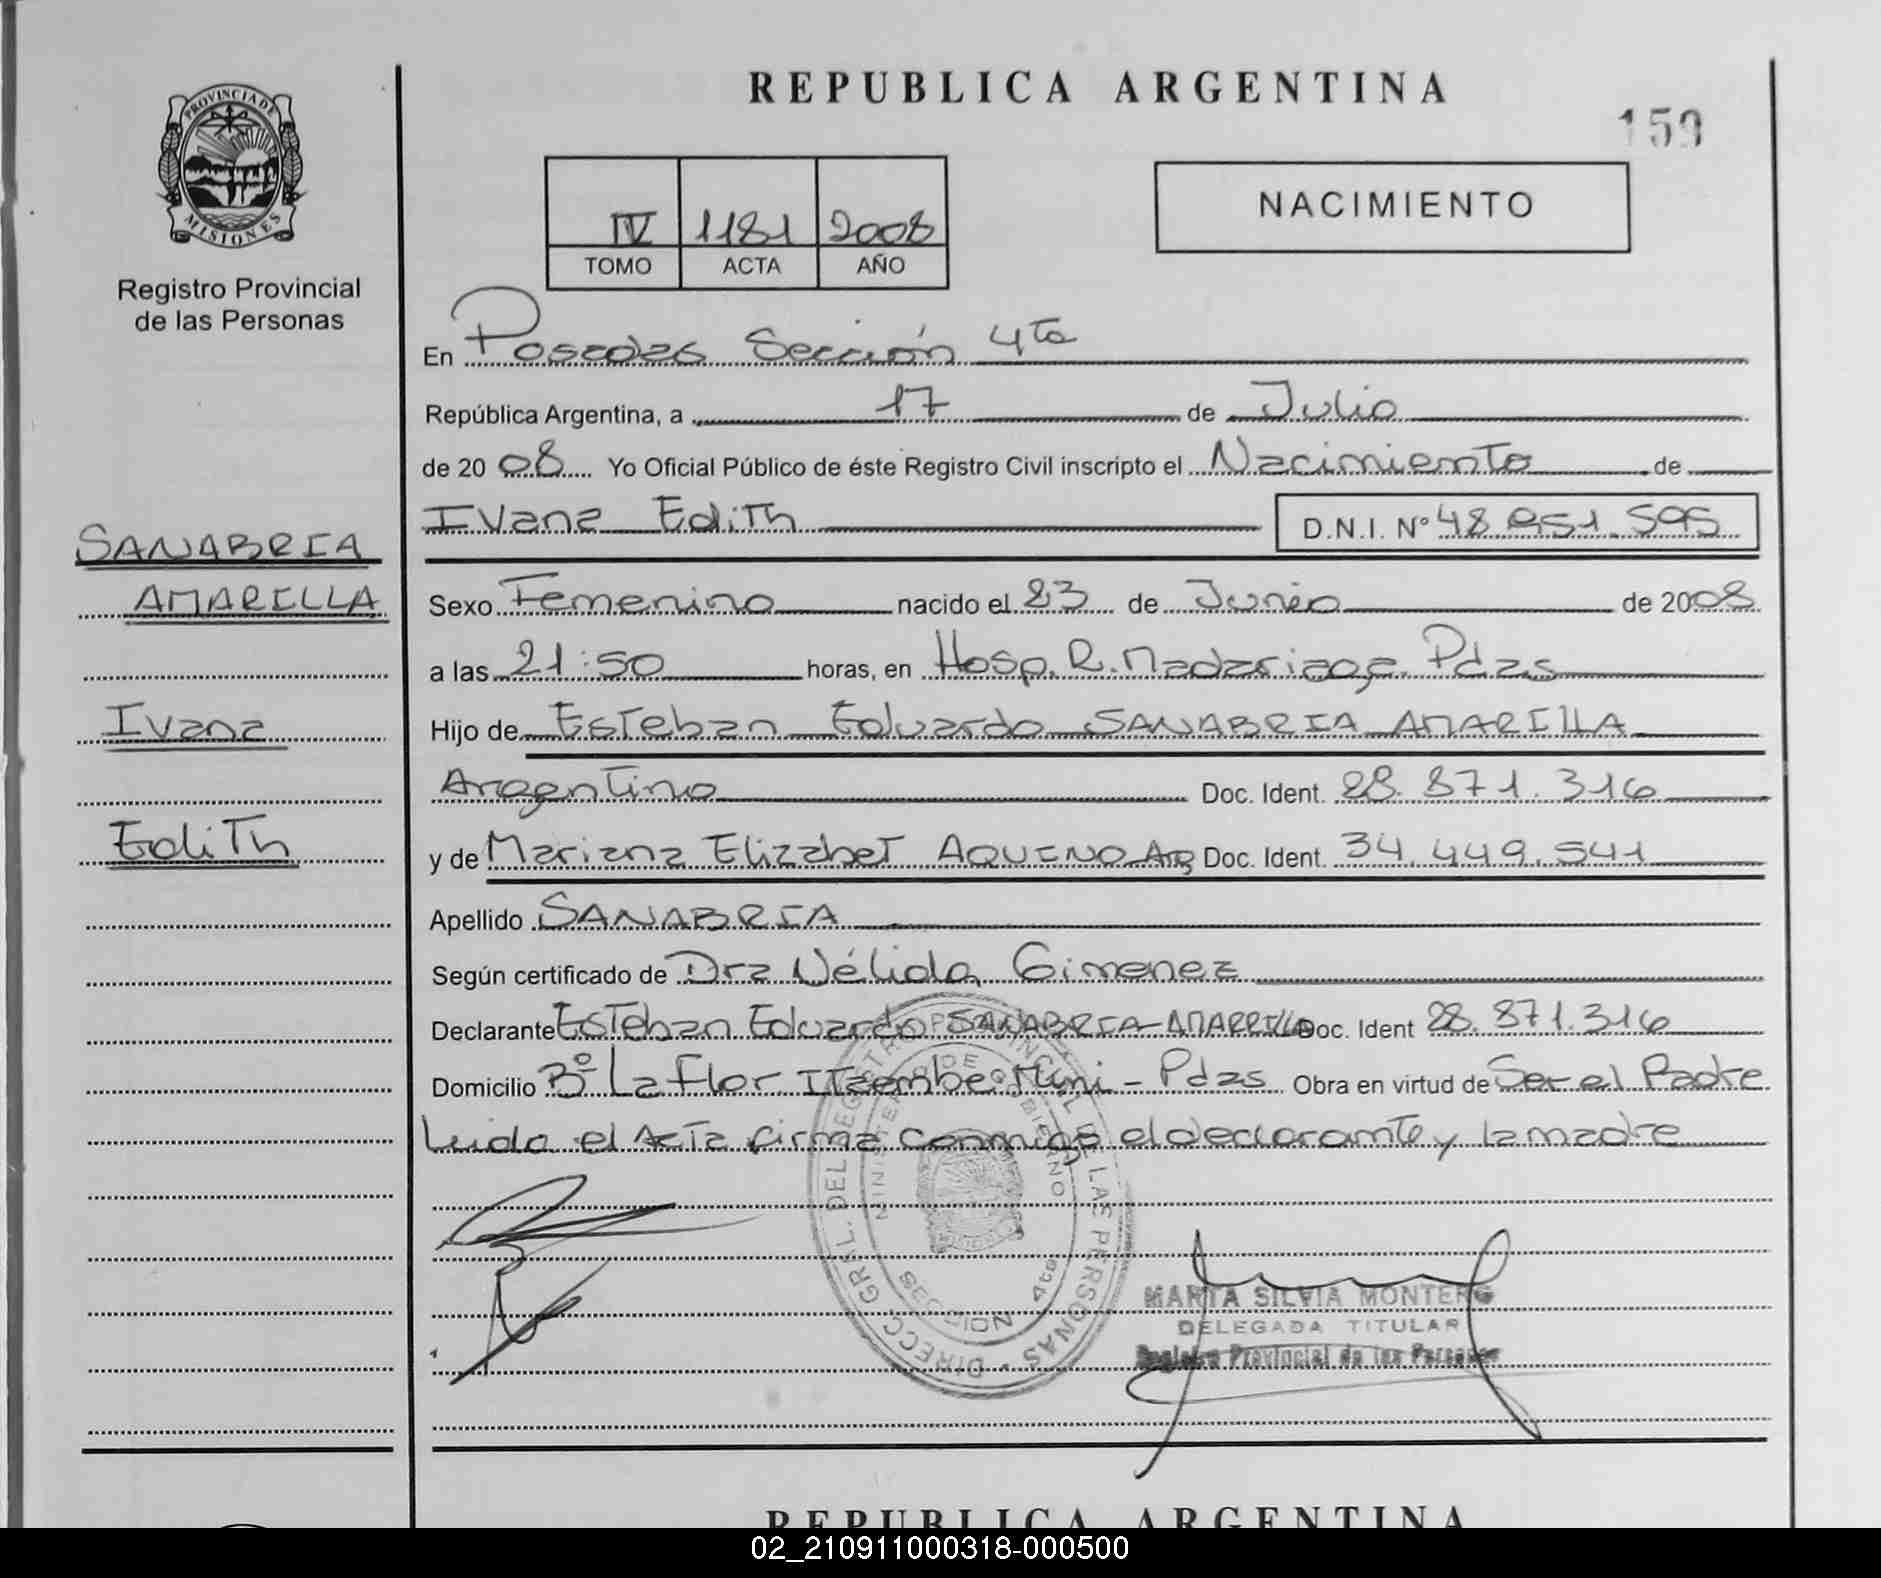 REPUBLICA ARGENTINA
159
PROVINCIA DE
MISIONES
Registro Provincial
de las Personas
IV 1181 2008
TOMO ACTA AÑO
NACIMIENTO
En Posadas Sección 4ta
República Argentina, a 17 de Julio
de 2008 Yo Oficial Público de éste Registro Civil inscripto el Nacimiento de
Ivana Edith D.N.I. Nº 48.951.595
SANABRIA
AMARILLA
Ivana
Edith
Sexo Femenino nacido el 23 de Junio de 2008
a las 21:50 horas, en Hosp. R. Madariaga Pdas
Hijo de Esteban Eduardo SANABRIA AMARILLA
Argentino Doc. Ident. 28.871.316
y de Mariana Elizabet AQUINO Arg Doc. Ident. 34.449.541
Apellido SANABRIA
Según certificado de Dra Nélida Gimenez
Declarante Esteban Eduardo SANABRIA AMARRILLA Doc. Ident 28.871.316
Domicilio Bº La Flor Itaembe Mini - Pdas Obra en virtud de Ser el Padre
Leida el Acta firma conmigo el declarante y la madre
DIRECC. GRAL. DEL REGISTRO PROVINCIAL DE LAS PERSONAS
MINISTERIO DE GOBIERNO
SECCION 4ta
MARTA SILVIA MONTERO
DELEGADA TITULAR
Registro Provincial de las Personas
REPUBLICA ARGENTINA
02_210911000318-000500